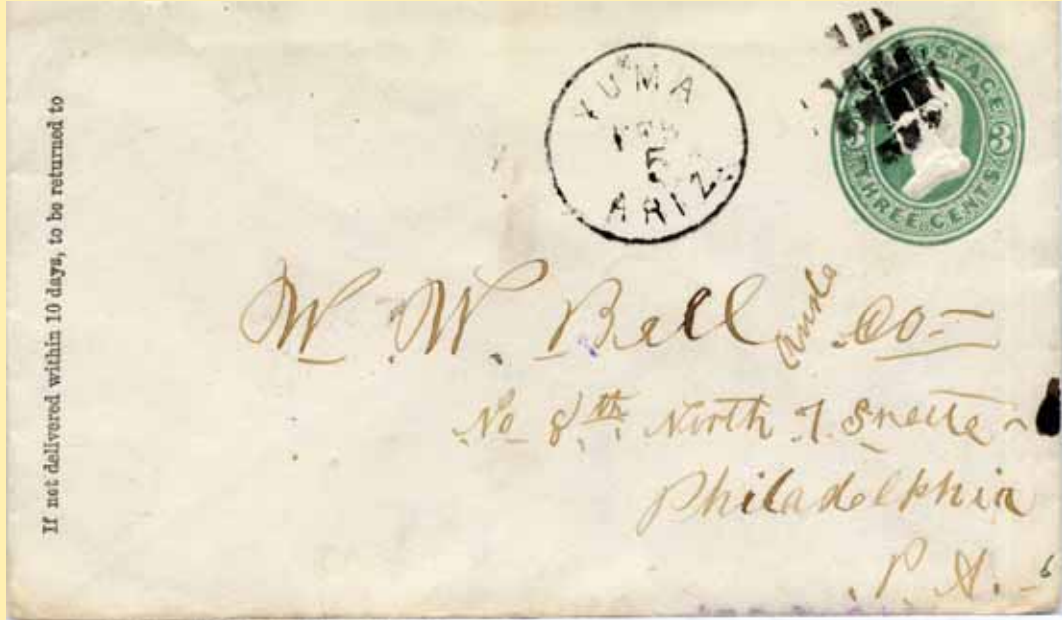 If not delivered within 10 days, to be returned to
YUMA
5
ARIZ.
POSTAGE
3 3
THREE CENTS.
W. W. Bell Co
No 8th North 7.
Philadelphia
P. A.
6